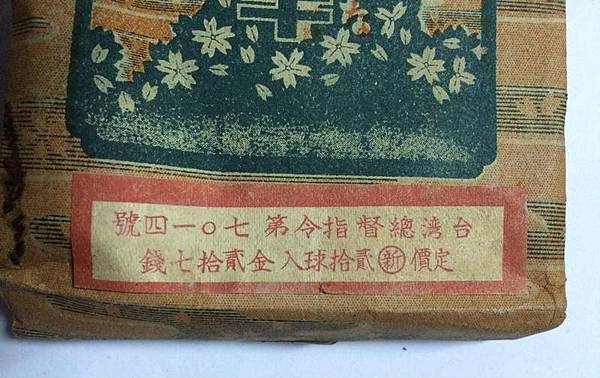 台湾總督指令第七〇一四號
定價㊟新貳拾球入金貳拾七錢